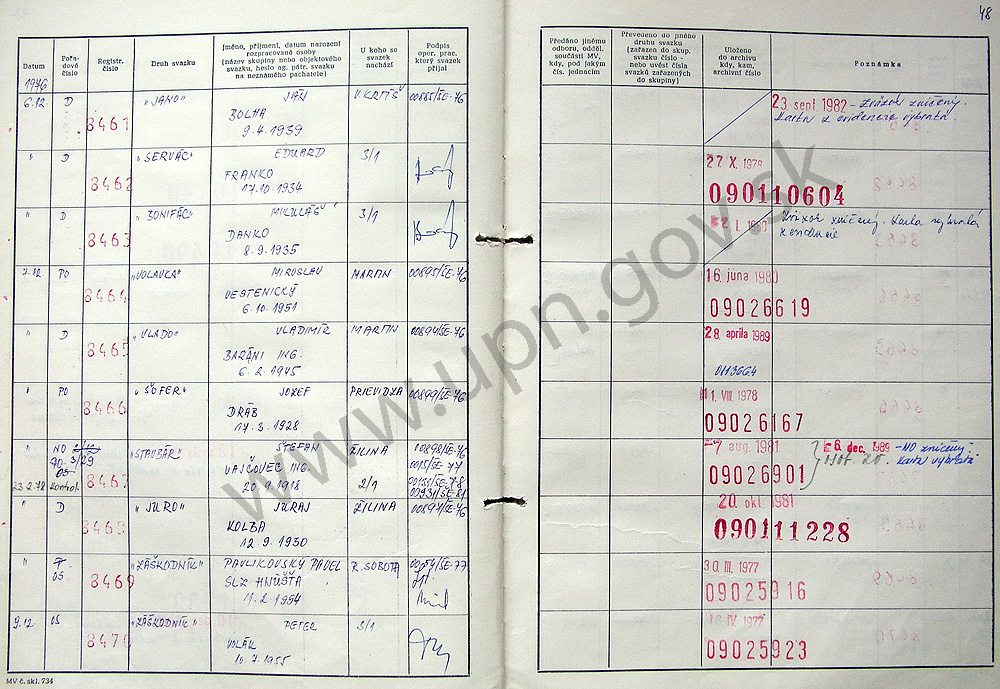 48
Datum
Pořadové číslo
Registr. číslo
Druh svazku
Jméno, příjmení, datum narození rozpracované osoby (název skupiny nebo objektového svazku, heslo ag. pátr. svazku na neznámého pachatele)
U koho se svazek nachází
Podpis oper. prac. který svazek přijal
Předáno jinému odboru, odděl. součásti MV, kdy, pod jakým čís. jednacím
Převedeno do jiného druhu svazku (zařazen do skup. svazku číslo - nebo uvést čísla svazků zařazených do skupiny)
Uloženo do archivu kdy, kam, archivní číslo
Poznámka
1976
6.12 D 8461 "JANO" JÁN V. KRTÍŠ 00865/ŠE-76
BOLHA
9.4.1939
23. sept. 1982 - Zväzok zničený.
Karta z evidence vybratá.
" D 8462 "SERVÁC" EDUARD 3/1
FRANKO
17.10.1934
27. X. 1978
090110604
" D 8463 "BONIFÁC" MIKULÁŠ 3/1
DANKO
8.9.1935
I. 1980
Zväzok zničený. Karta vybratá
z evidencie
7.12 PO 8464 "VOLAVKA" MIROSLAV MARTIN 00895/ŠE-76
VESTENICKÝ
6.10.1951
16. júna 1980
09026619
" D 8465 "VLADO" VLADIMÍR MARTIN 00894/ŠE-76
BARÁNI ING.
6.2.1945
28. apríla 1989
" PO 8466 "ŠOFER" JOZEF PRIEVIDZA 00899/ŠE-76
DRÁB
17.3.1928
1. VIII. 1978
09026167
" NO 8467 "STAUBÁR" ŠTEFAN ŽILINA 00898/ŠE-76
VAJČOVEC ING.
20.9.1918
23.2.78 Kontrol. 2/1
7. aug. 1981
09026901
6. dec. 1989 - NO zničený.
Karta vybratá
" D 8468 "JURO" JURAJ ŽILINA 00897/ŠE-76
KOLBA
12.9.1930
20. okt. 1981
090111228
" OS 8469 "ZÁŠKODNÍK" PAVLIKOVSKÝ PAVEL R. SOBOTA 00054/ŠE-77
SLZ HNÚŠŤA
11.2.1954
30. III. 1977
09025916
9.12. OS 8470 "ZÁŠKODNÍK" PETER 3/1
VOLÁK
10.7.1955
IV. 1977
09025923
MV č. skl. 734
www.upn.gov.sk